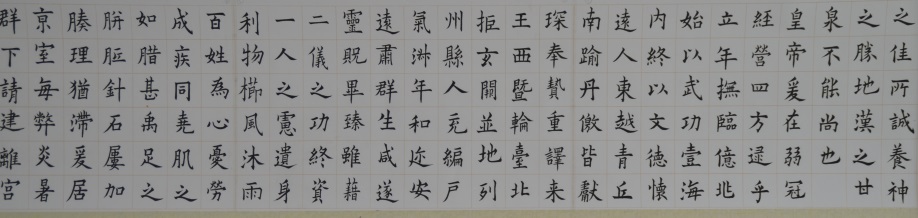 之佳所誠養神
之勝地漢之甘
泉不能尚也
皇帝爰在弱冠
經營四方逮乎
立年撫臨億兆
始以武功壹海
内終以文徳懷
遠人東越青丘
南踰丹儌皆獻
琛奉贄重譯来
王西暨輪臺北
拒玄闕並地列
州縣人充編戸
氣淋年和迩安
遠肅群生咸遂
靈貺畢臻雖藉
二儀之功終資
一人之慮遺身
利物櫛風沐雨
百姓為心憂勞
成疾同堯肌之
如腊甚禹足之
胼胝針石屢加
腠理猶滯爰居
京室每弊炎暑
群下請建離宮